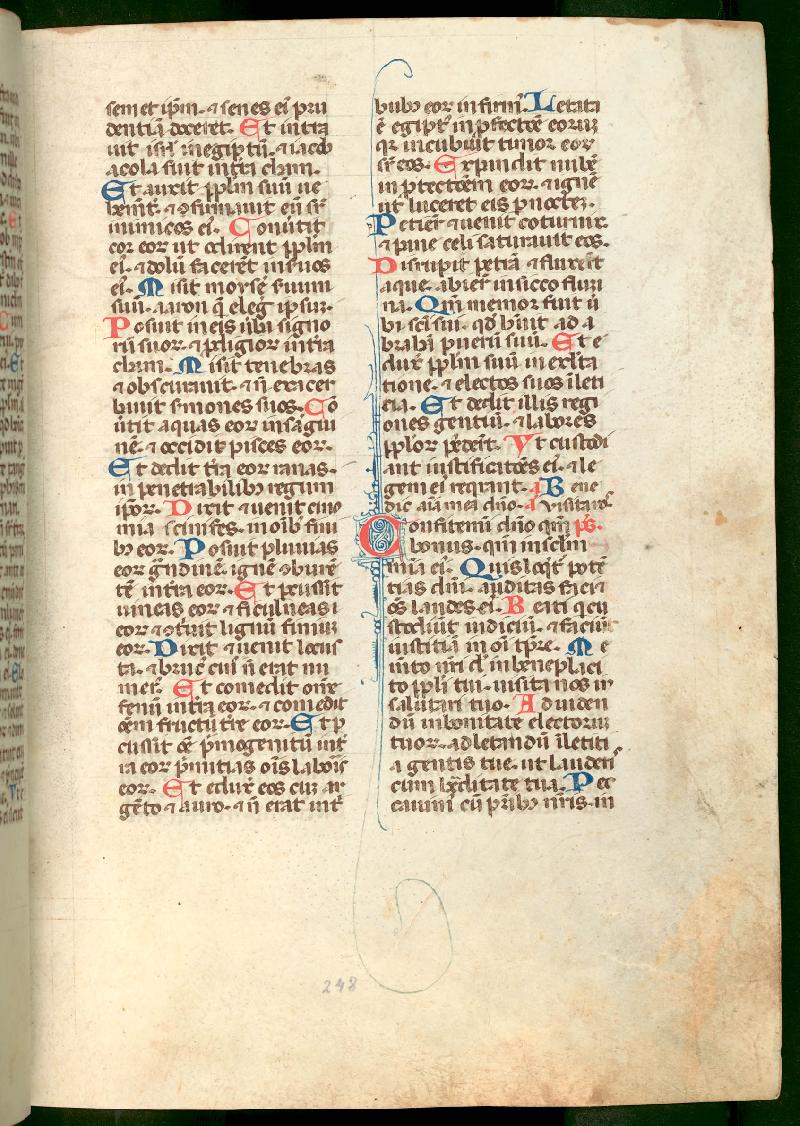 sem et ip̄m. ⁊ senes ei᷒ pru
dentiā doceret. Et intra
uit isrl̄ in egiptū. ⁊ iacob
acola fuit in tr̄a cham.
Et auxit ppl̄m suū ue
hemēt̄. ⁊ ꝯfirmauit eū sr̄
inimicos ei᷒. Conūtit
cor eoꝝ ut odirent ppl̄m
ei᷒. ⁊ dolū facerēt in suos
ei᷒. Misit moysē suum
suū. aaron q̄ eleḡ ip̄suꝝ.
Posuit in eis ūba signo
rū suoꝝ. ⁊ ꝓdigioꝝ in tr̄a
cham. Misit tenebras
⁊ obscurauit. ⁊ ñ exacer
bauit s̄mones suos. Cō
ūtit aquas eoꝝ in sāgui
nē. ⁊ occidit pisces eoꝝ.
Et dedit tr̄a eoꝝ ranas.
in penetrabilibꝫ regum
ip̄oꝝ. Dixit ⁊ uenit cino
mia ⁊ scinifes. in oīb finī
bꝫ eoꝝ. Posuit pluuias
eoꝝ gͣndinē. ignē ꝯburē
tē in tr̄a eoꝝ. Et ꝑcussit
uineas eoꝝ ⁊ ficulneas
eoꝝ ⁊ ꝯtiuit lignū finiū
eoꝝ. Dixit ⁊ uenit locus
ta. ⁊ bruc᷒ cui᷒ ñ erat nu
mer᷒. Et comedit om̄e
fenū in tr̄a eoꝝ. ⁊ comedit
oēm fructū tr̄e eoꝝ. Et ꝑ
cussit oē p̄mogenitū in t
ra eoꝝ p̄mitias oīs laboīs
eoꝝ. Et edux̄ eos cū ar
gēto ⁊ auro. ⁊ ñ erat in t
bubꝫ eoꝝ infirm᷒. Letata
ē egipt᷒ in ꝓfectōe eorum
qꝛ incubuit timor eoꝝ
sr̄ eos. Expandit nubē
in ꝓtectōem eoꝝ. ⁊ ignē
ut luceret eis ꝑ noctē.
Petier̄t ⁊ uenit coturnix
⁊ pane celi saturauit eos.
Disrupit petrā ⁊ fluxert̄
aque. abier̄t in sicco flumi
na. Qm̄ memor fuit ū
bi sc̄i sui. qd̄ h̄uit ad a
braham puerū suū. Et e
dux̄ ppl̄m suū in exulta
tione. ⁊ electos suos ī leti
cia. Et dedit illis regi
ones gentiū. ⁊ labores
ppl̄oꝝ possedert̄. Vt custodi
ant iustificatōes ei᷒. ⁊ le
gem ei᷒ reqrant. A Bene
dic aīa mea dn̄o. A Visitans
Confitemī dn̄o qm̄ ps̄.
bonus. qm̄ in sclm̄
mīa ei᷒. Quis loq̄t᷑ potē
tias dn̄i. auditas faciet
oēs laudes ei᷒. Beati qui
custodiūt iudiciū. ⁊ faciūt
iustitiā in oī tp̄re. Me
mēto nr̄i dn̄e in beneplaci
to ppl̄i tui. uisita nos in
salutari tuo. Ad uiden
dū in bonitate electorū
tuoꝝ. ad letandū ī letiti
a gentis tue. ut lauderis
cum h̄editate tua. Pec
cauim᷒ cū pr̄ibꝫ nr̄is. in
248